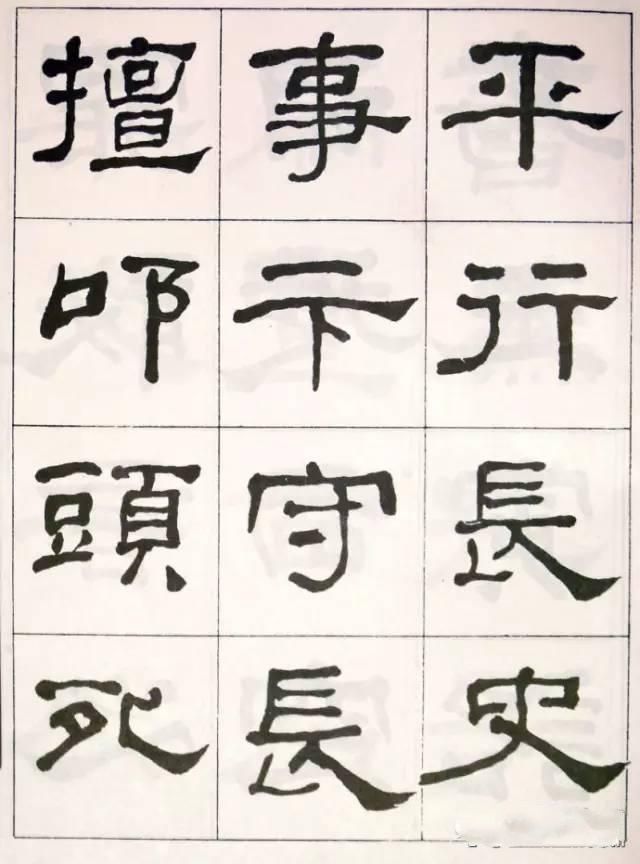 平行長史
事卞守長
擅叩頭死